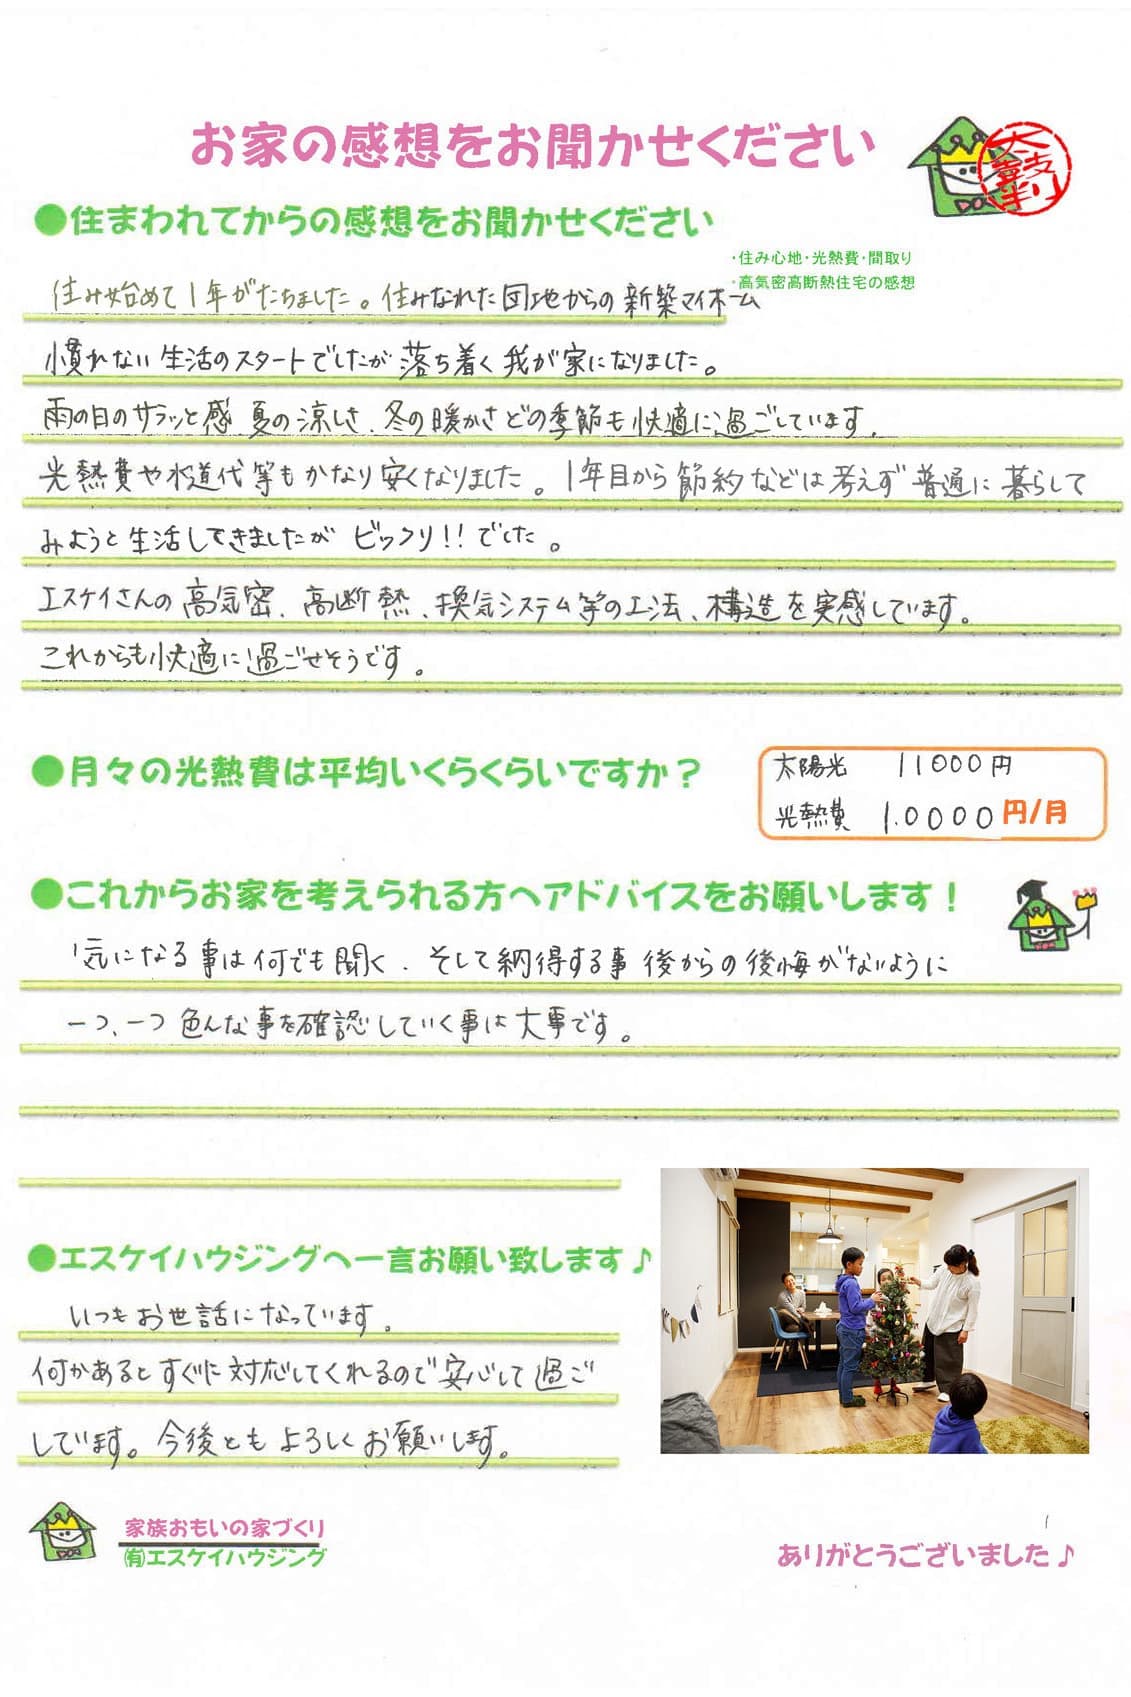 お家の感想をお聞かせください
太鼓判
●住まわれてからの感想をお聞かせください
・住み心地・光熱費・間取り
・高気密高断熱住宅の感想
住み始めて1年がたちました。住みなれた団地からの新築マイホーム
慣れない生活のスタートでしたが落ち着く我が家になりました。
雨の日のサラッと感、夏の涼しさ、冬の暖かさどの季節も快適に過ごしています。
光熱費や水道代等もかなり安くなりました。1年目から節約などは考えず普通に暮らして
みようと生活してきましたがビックリ!!でした。
エスケイさんの高気密、高断熱、換気システム等の工法、構造を実感しています。
これからも快適に過ごせそうです。
●月々の光熱費は平均いくらくらいですか？
太陽光 11000円
光熱費 1.0000円/月
●これからお家を考えられる方へアドバイスをお願いします！
気になる事は何でも聞く、そして納得する事 後からの後悔がないように
一つ、一つ色んな事を確認していく事は大事です。
●エスケイハウジングへ一言お願い致します♪
いつもお世話になっています。
何かあるとすぐに対応してくれるので安心して過ご
しています。今後ともよろしくお願いします。
家族おもいの家づくり
㈲エスケイハウジング
ありがとうございました♪